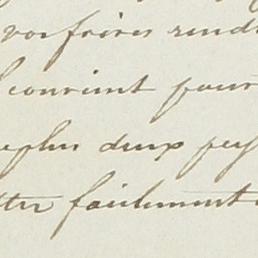 vos frères rend
convient pour
plus deux pay
facilement